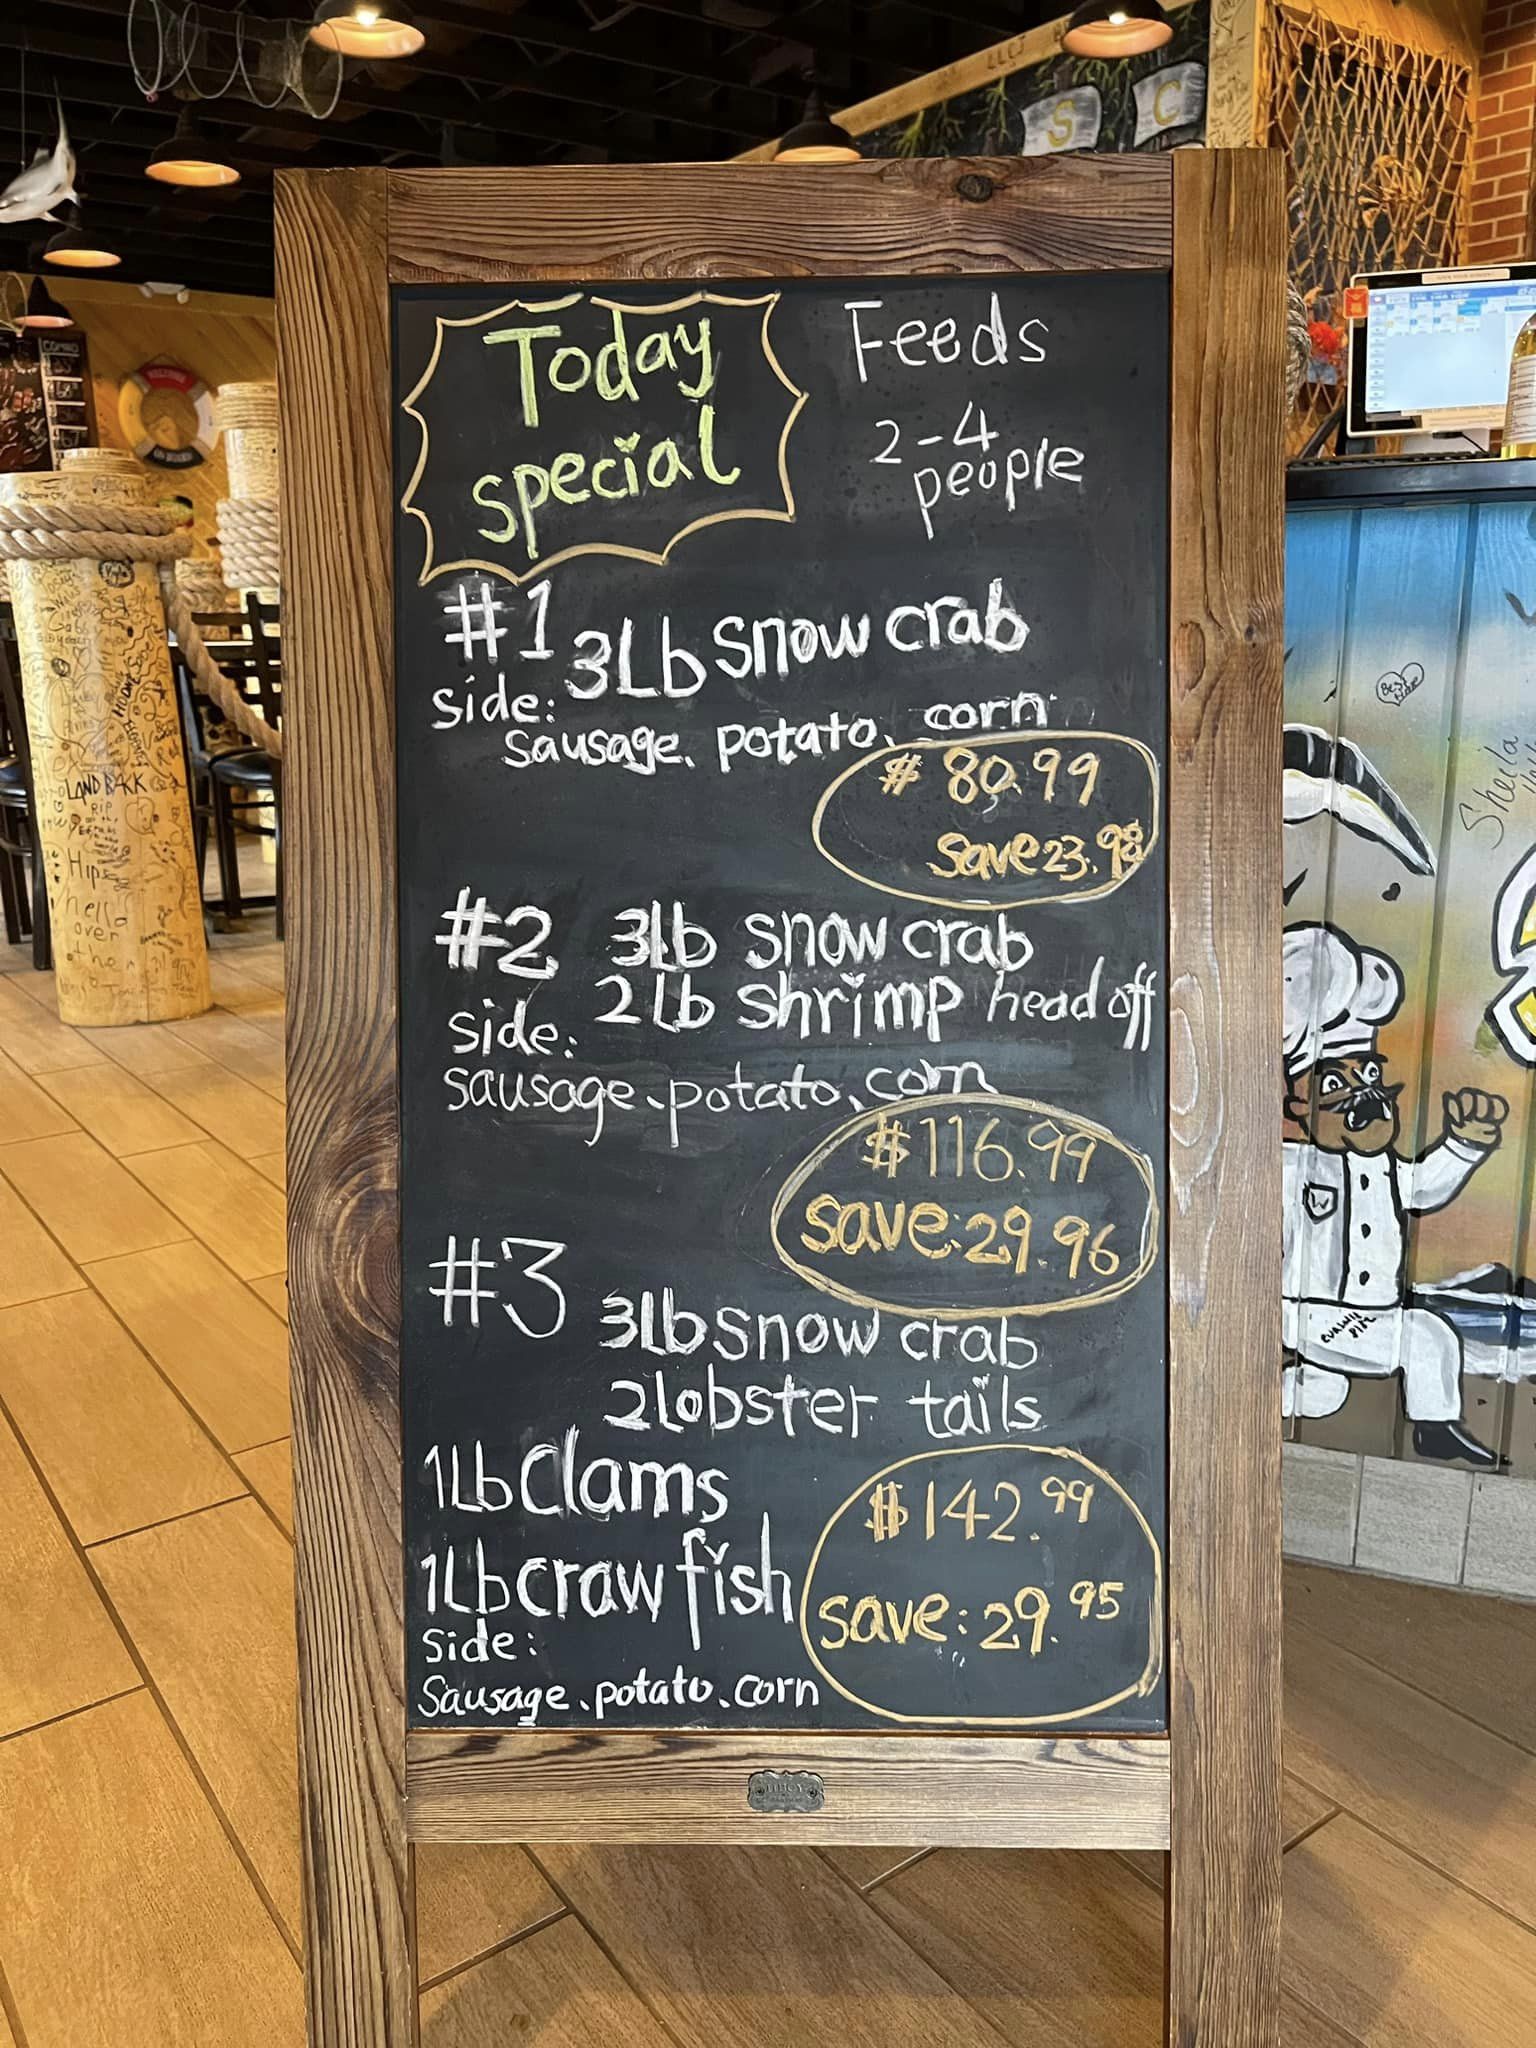 Today
special
Feeds
2-4
people
#1 3Lb snow crab
side:
sausage. potato. corn
$ 80.99
save 23.98
#2 3lb snow crab
2lb shrimp head off
side:
sausage.potato.corn
$116.99
save:29.96
#3
3lb snow crab
2 Lobster tails
1Lb Clams
1Lb craw fish
side:
Sausage.potato.corn
$142.99
save:29.95
S C
LAND BACK
RIP
Hips
hello
over
Best
Sheila